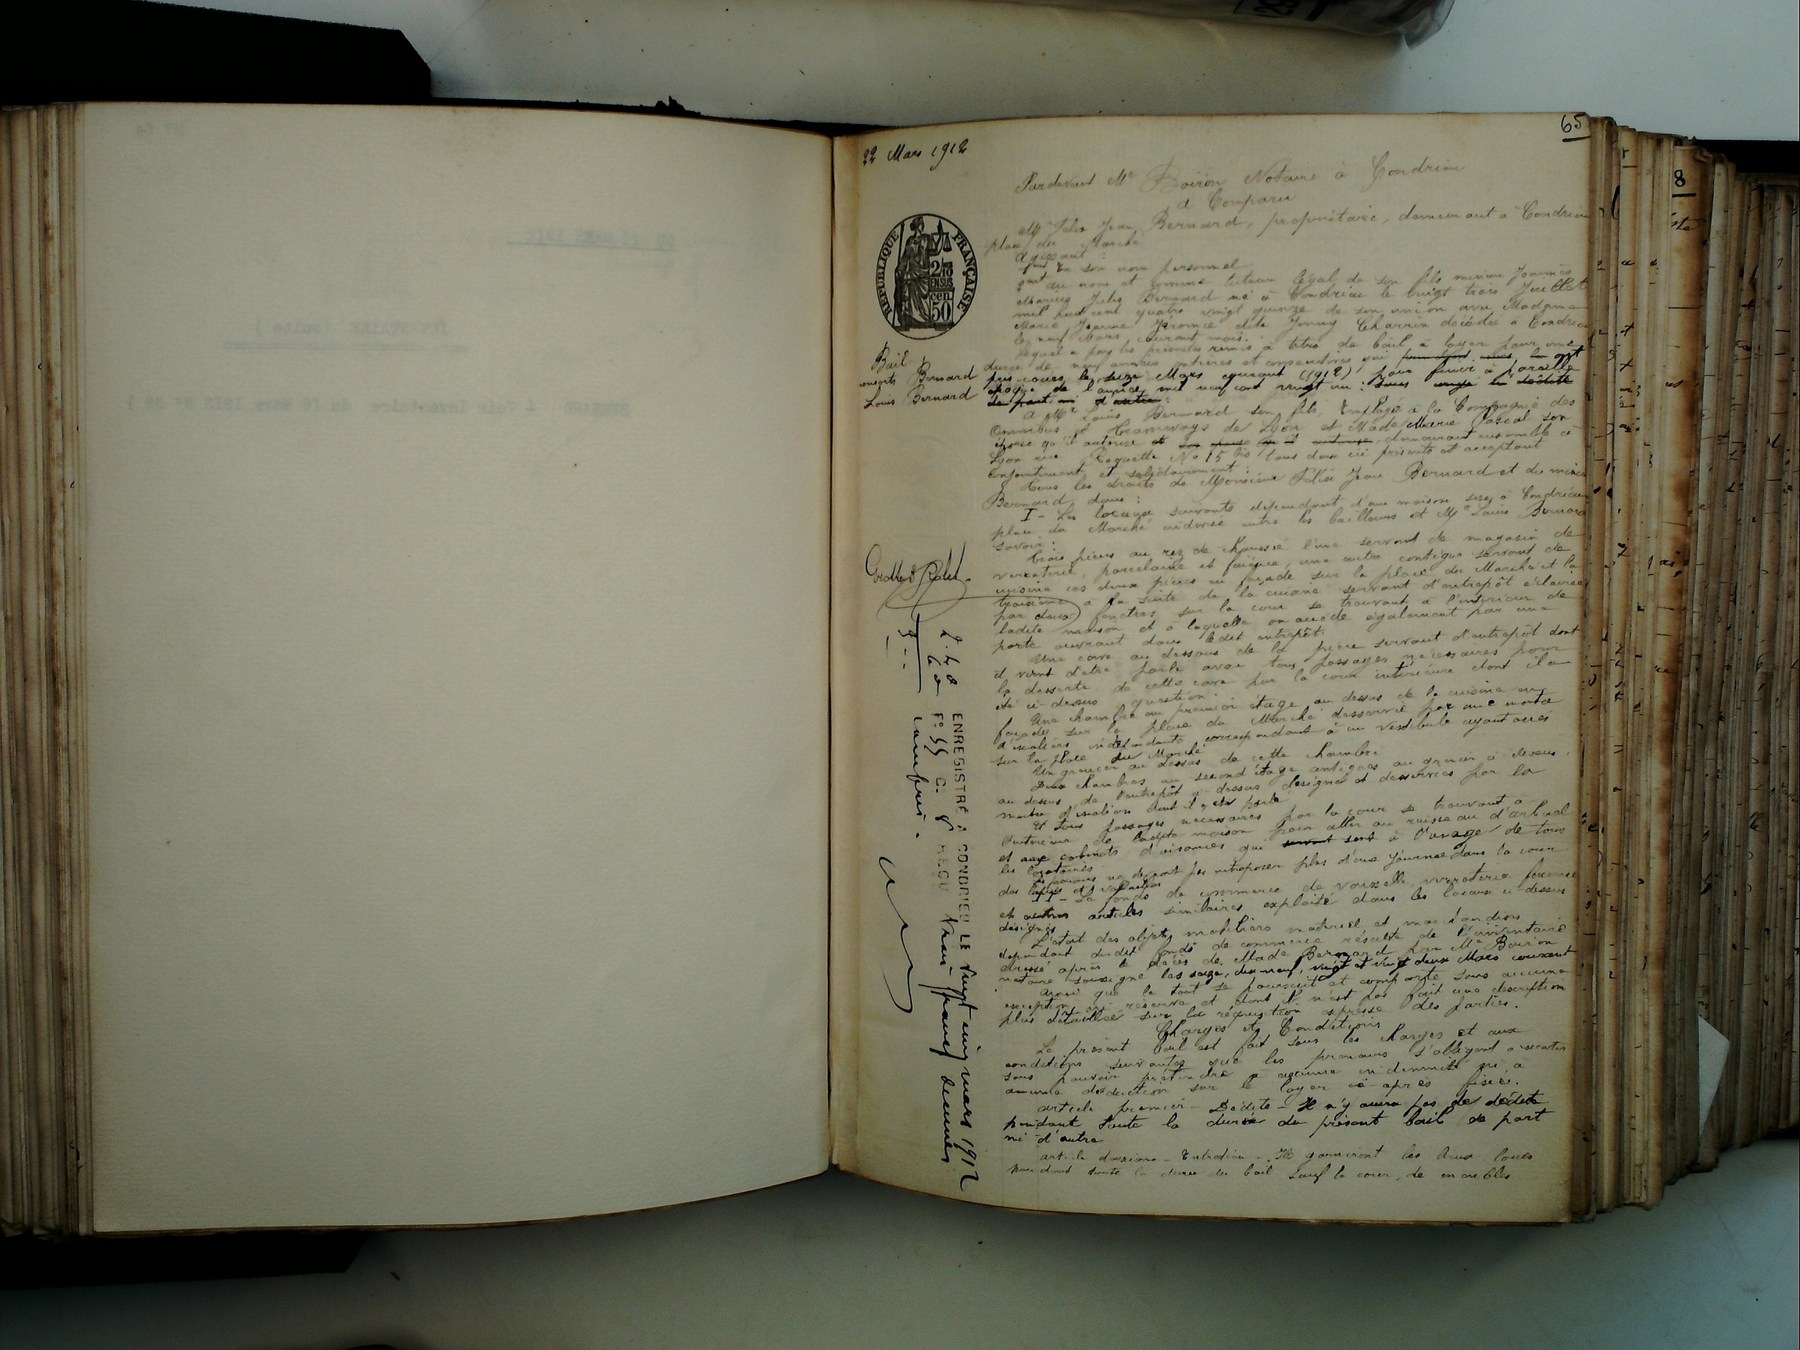 65
22 Mars 1912
Pardevant Me Boiron Notaire à Condrieu
a Comparu
Mr Felix Jean Bernard, propriétaire, demeurant à Condrieu
place du Marché
Agissant :
1ent En son nom personnel
2ent Au nom et comme tuteur légal de son fils mineur Joannès
Marius Jules Bernard né à Condrieu le vingt trois Juillet
mil huit cent quatre vingt quinze de son union avec Madame
Marie Jeanne dite Jenny Charrin décédée à Condrieu
le neuf Mars courant mois.
Lequel a par les présentes remis à titre de bail à loyer pour une
durée de neuf années entières et consécutives qui ont
pris cours le seize Mars courant (1912) pour finir à pareille
époque de l'année mil neuf cent vingt un
A Mr Louis Bernard son fils, Employé à la Compagnie des
Omnibus et Tramways de Lyon et Made Marie Pascal son
épouse qu'il autorise demeurant ensemble à
Lyon rue Roquette No 15 bis tous deux ici présents et acceptant
conjointement et solidairement :
Tous les droits de Monsieur Félix Jean Bernard et du mineur
Bernard, dans :
I - Les locaux suivants dépendant d'une maison sise à Condrieu
place du Marché indivise entre les bailleurs et Mr Louis Bernard
savoir :
Trois pièces au rez de chaussée l'une servant de magasin de
verrerie, porcelaine et faïence, une autre contigue servant de
cuisine ces deux pièces en façade sur la place du Marché et la
troisième à la suite de la cuisine servant d'entrepôt éclairée
par deux fenêtres sur la cour se trouvant à l'intérieur de
ladite maison et à laquelle on accède également par une
porte ouvrant dans ledit entrepôt.
Une cave au dessous de la pièce servant d'entrepôt dont
il vient d'être parlé avec tous passages nécessaires pour
la desserte de cette cave par la cour intérieure dont il a
été ci-dessus question.
Une chambre au premier étage au dessus de la cuisine en
façade sur la place du Marché desservie par une montée
d'escaliers indépendante correspondant à un vestibule ayant accès
sur la place du Marché
Un grenier au dessus de cette chambre
Deux chambres au second étage antigues au grenier ci-dessus,
au dessus de l'entrepôt ci-dessus désigné et desservies par la
montée d'escaliers dont il est parlé
Et tous passages nécessaires par la cour se trouvant à
l'intérieur de ladite maison pour aller au ruisseau d'arbuel
et aux cabinets d'aisances qui sont à l'usage de tous
les locataires
Les preneurs ne devront pas entreposer plus d'une journée dans la cour
des
II - Le fonds de commerce de vaisselle, verreterie faïence
et autres articles similaires exploité dans les locaux ci-dessus
désignés
L'état des objets mobiliers matériel et marchandises
dépendant dudit fonds de commerce résulte de l'inventaire
dressé après le décès de Made Bernard par Me Boiron
notaire soussigné les seize, dix neuf, vingt et vingt deux Mars courant
Ainsi que le tout se poursuit et comporte sans aucune
exception ni réserve et dont il n'est pas fait une description
plus détaillée sur la réquisition expresse des parties.
Charges et Conditions
Le présent bail est fait sous les charges et aux
conditions suivantes que les preneurs s'obligent à exécuter
sans pouvoir prétendre à aucune indemnité ni à
aucune déduction sur le loyer ci-après fixé.
Article premier - Dédite - Il n'y aura pas de dédite
pendant toute la durée du présent bail de part
ni d'autre
Article deuxième - Entretien - Ils garniront les lieux loués
pendant toute la durée du bail sauf la cour, de meubles
RÉPUBLIQUE FRANÇAISE
cen. 50
Bail
Bernard
Louis Bernard
ENREGISTRÉ A CONDRIEU LE Vingt cinq mars 1912
Fo 55 C. 8 REÇU
compris.